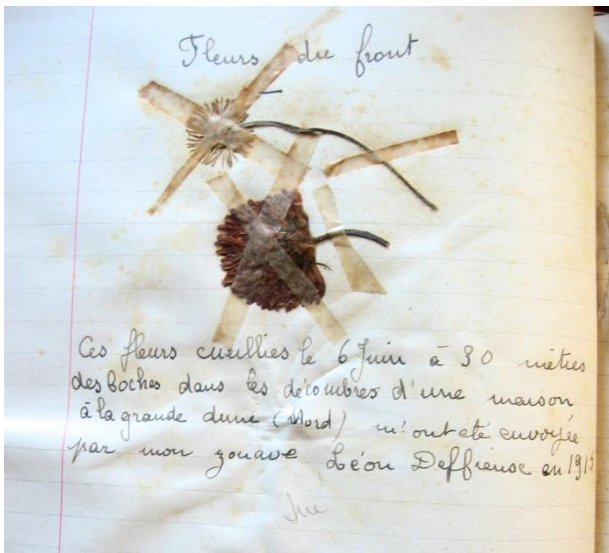 Fleurs du front
Ces fleurs cueillies le 6 Juin à 30 mètres
des boches dans les décombres d'une maison
à la grande dune (Nord) m'ont été envoyée
par mon zouave Léon Deffieuse en 1915